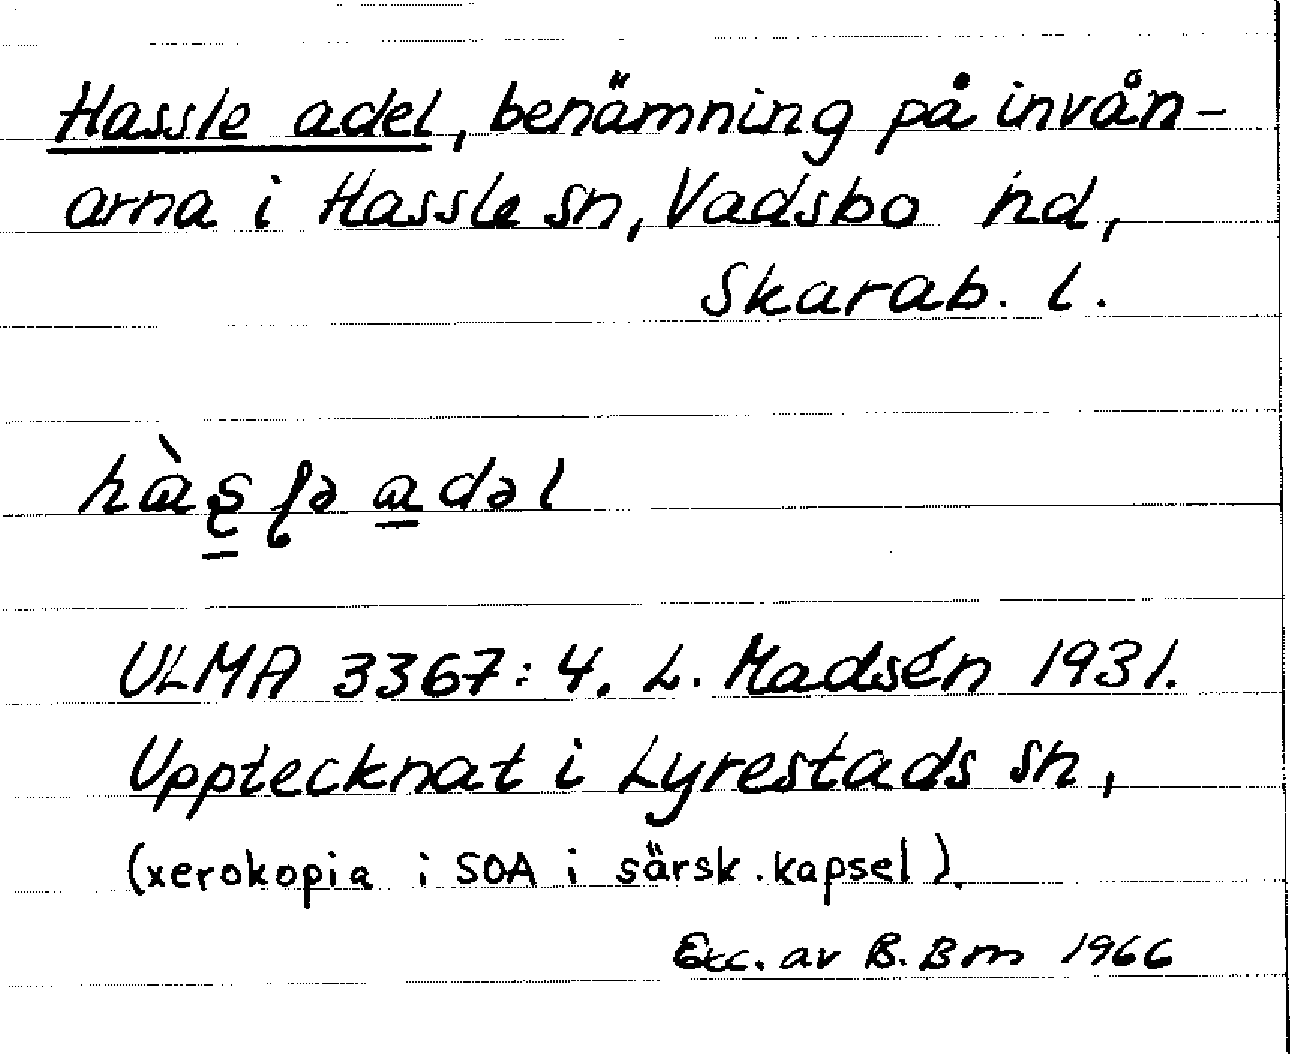 Hassle adel, benämning på invån-
arna i Hassle sn, Vadsbo hd,
Skarab. l.
hàs̱ļə a̱dəl
ULMA 3367:4. L. Madsén 1931.
Upptecknat i Lyrestads sn,
(xerokopia i SOA i särsk. kapsel).
Exc. av B. Bm 1966